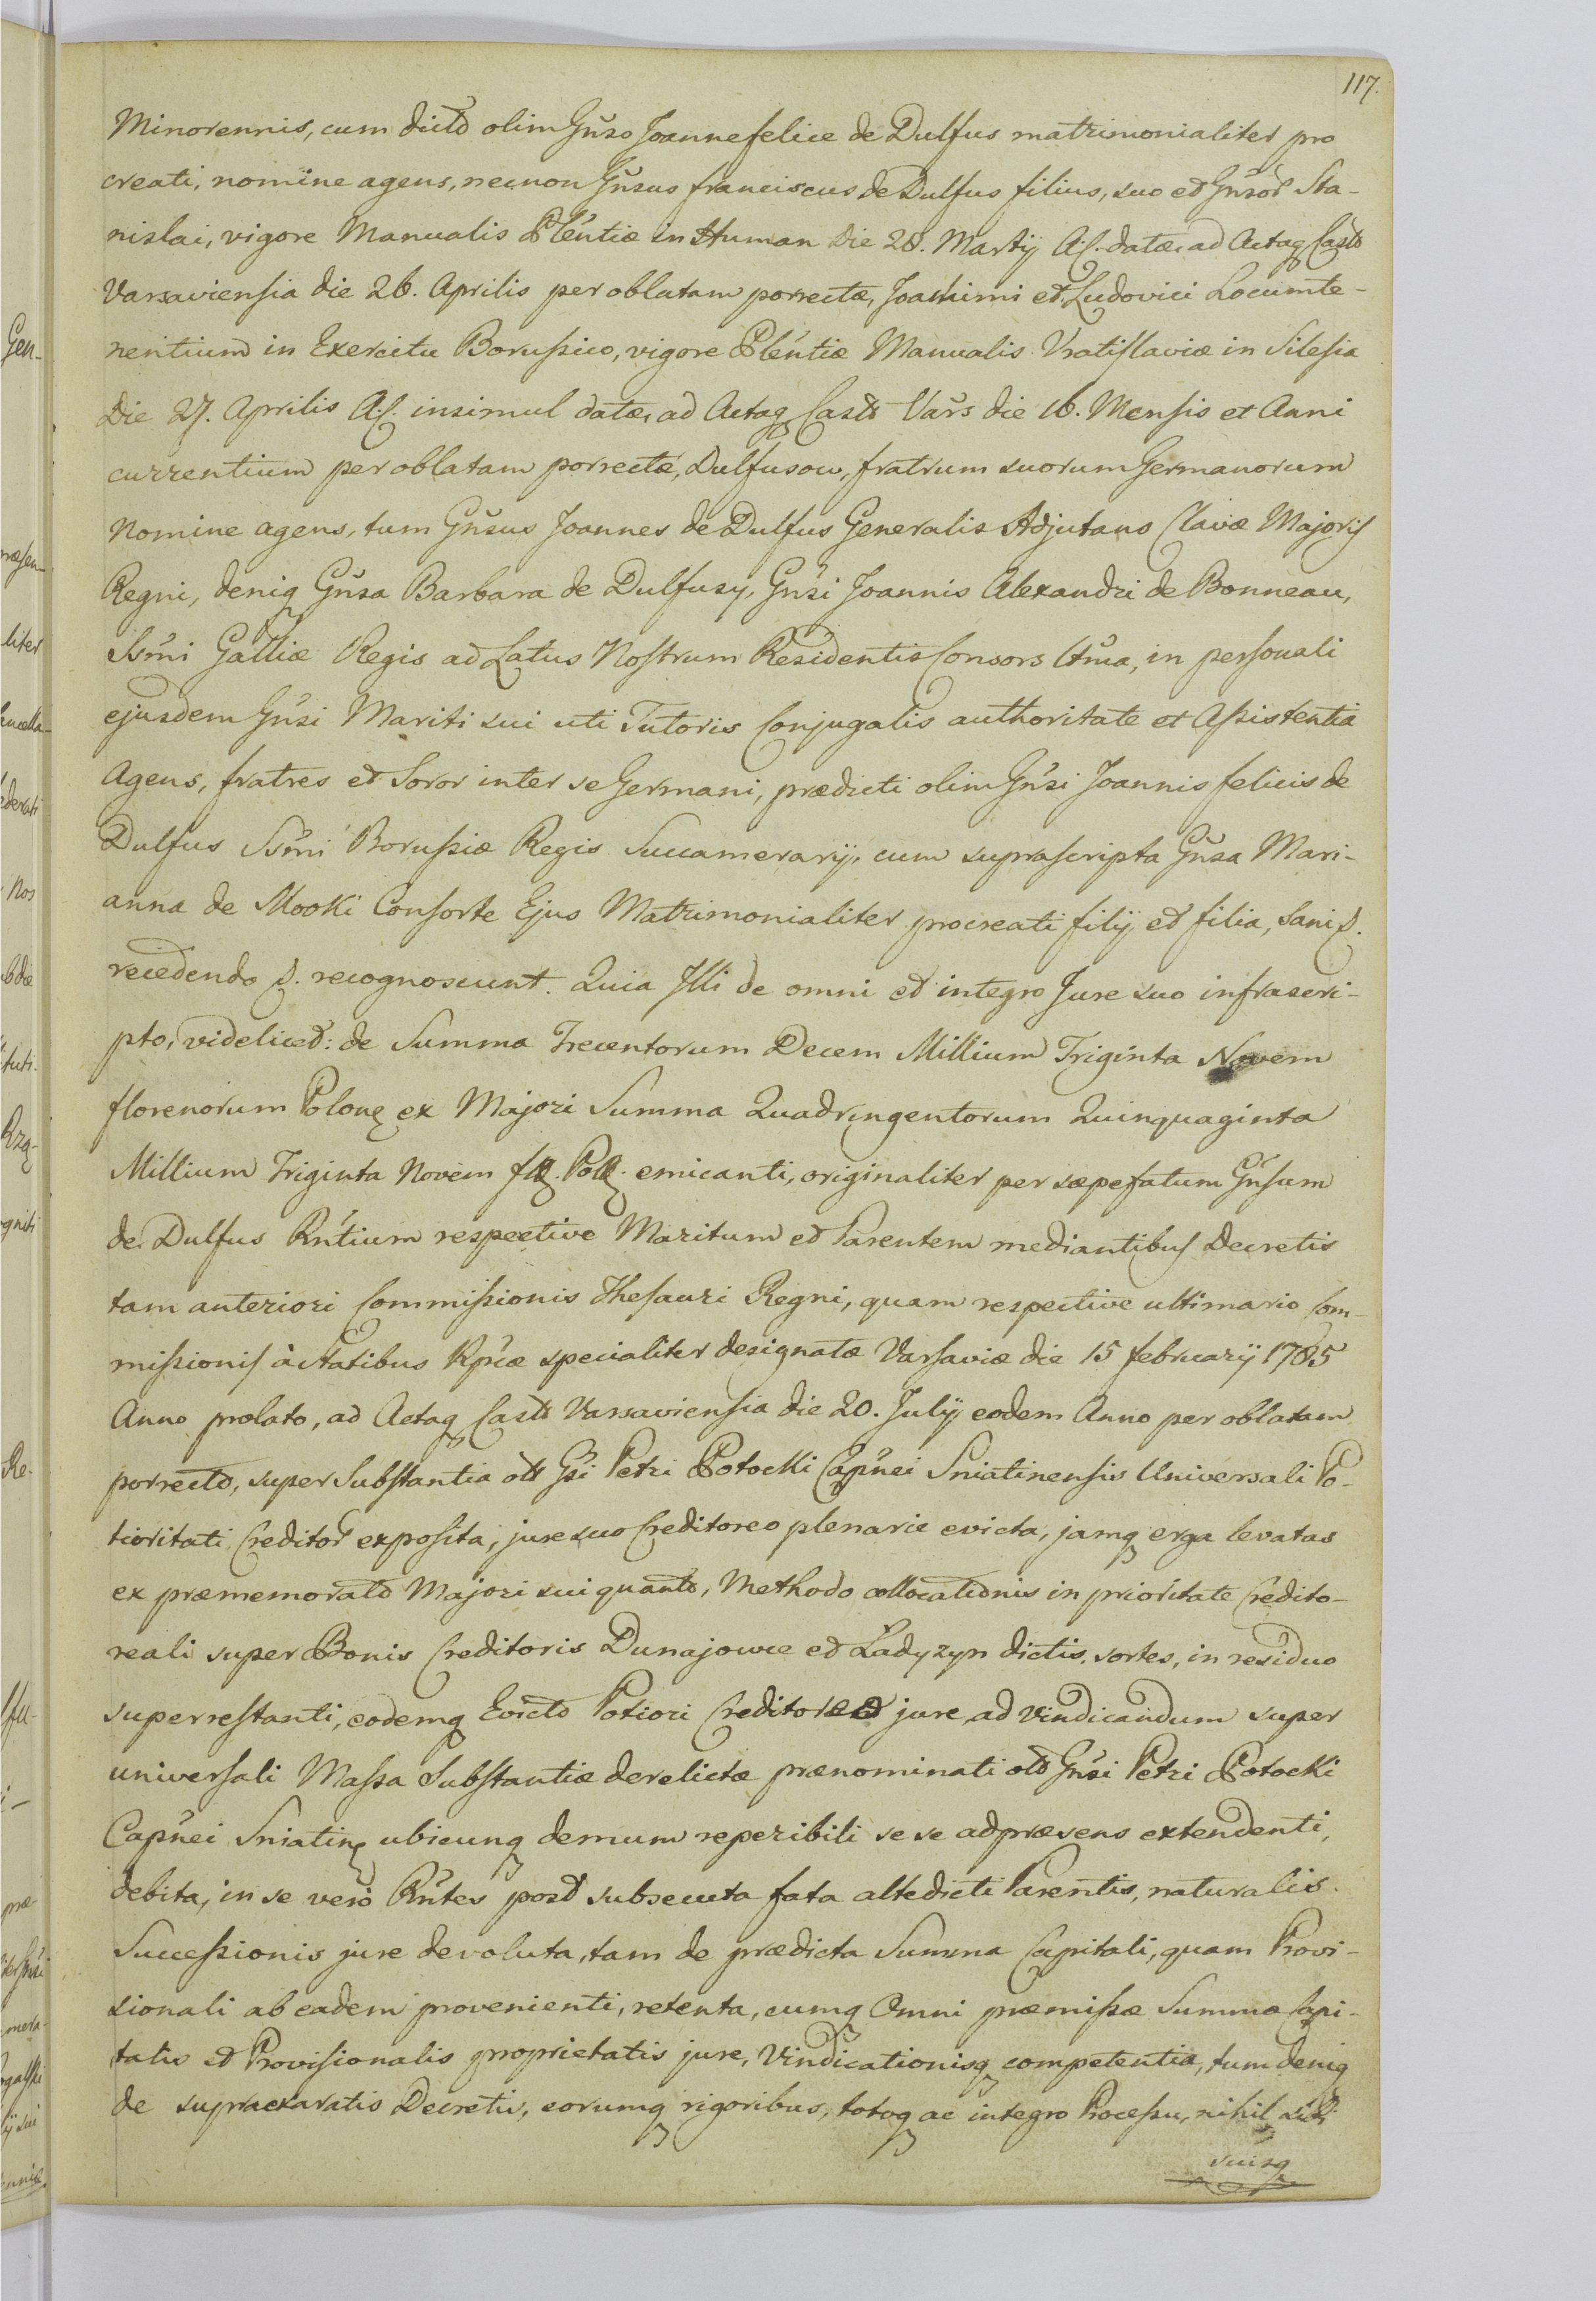 117.
Minorennis, cum dicto olim Gnŝo Joanne felice de Dulfus matrimonialiter pro
creati, nomine agens, necnon Gnŝus franciscus de Dulfus filius, suo et Gnŝor Sta-
nislai, vigore Manualis Plentiæ in Human Die 28. Martij A.C. datæ, ad Actaq Castr
Varsaviensia die 26. Aprilis per oblatam porrectæ, Joachimi et Ludovici Locumte-
nentium in Exercitu Borussico, vigore Plentiæ Manualis Vratislaviæ in Silesia
Die 27. Aprilis A.C. insimul datæ, ad Actaq Castr Vars die 16. Mensis et Anni
currentium per oblatam porrectæ, Dulfusow, fratrum suorum Germanorum
Nomine agens, tum Gnŝus Joannes de Dulfus Generalis Adjutans Clavæ Majoris
Regni, deniq Gnŝa Barbara de Dulfusy, Gnŝi Joannis Alexandri de Bonneau,
Ssmi Galliæ Regis ad Latus Nostrum Residentis Consors Ltma, in personali
ejusdem Gnŝi Mariti sui uti Tutoris Conjugalis authoritate et Assistentia
Agens, fratres et Soror inter se Germani, prædicti olim Gnŝi Joannis felicis de
Dulfus Ssmi Borussiæ Regis Succamerarij, cum suprascripta Gnŝa Mari-
anna de Mooki Consorte Ejus Matrimonialiter procreati filij et filia, Sani p.
recedendo p. recognoscunt. Quia Illi de omni et integro Jure suo infrascri-
pto, videlicet: de Summa Trecentorum Decem Millium Triginta Novem
florenorum Polonq ex Majori Summa Quadringentorum Quinquaginta
Millium Triginta Novem fllq. Pollq. emicanti, originaliter per sæpefatum Gnŝum
de Dulfus Rntium respective Maritum et Parentem mediantibus Decretis
tam anteriori Commissionis Thesauri Regni, quam respective ultimario Com-
missionis à Statibus Rpcæ specialiter designatæ Varsaviæ die 15 februarij 1785
Anno prolato, ad Actaq Castr Varsaviensia die 20. Julij eodem Anno per oblatam
porrecto, super Substantia olt Gsi Petri Potocki Capnei Sniatinensis Universali Po-
tioritati Creditor exposita, jure suo Creditoreo plenarie evicta, jamq erga levatas
ex præmemorato Majori sui quanto, Methodo collocationis in prioritate Credito-
reali super Bonis Creditoris Dunajowce et Ładyzyn dictis, sortes, in residuo
superrestanti, eodemq Evicto Potiori Creditoreo jure, ad vindicandum super
universali Massa Substantiæ derelictæ prænominati olt Gnŝi Petri Potocki
Capnei Sniatinq ubicunq demum reperibili se se ad præsens extendenti,
debita, in se vero Rntes post subsecuta fata altedicti Parentis, naturalis
Successionis jure devoluta, tam de prædicta Summa Capitali, quam Provi-
sionali ab eadem provenienti, retenta, cumq Omni præmissæ Summæ Capi-
talis et Provisionalis proprietatis jure, Vindicationisq competentia, tum deniq
de supraexaratis Decretis, eorumq rigoribus, totoq ac integro Processu, nihil sibi
suisq